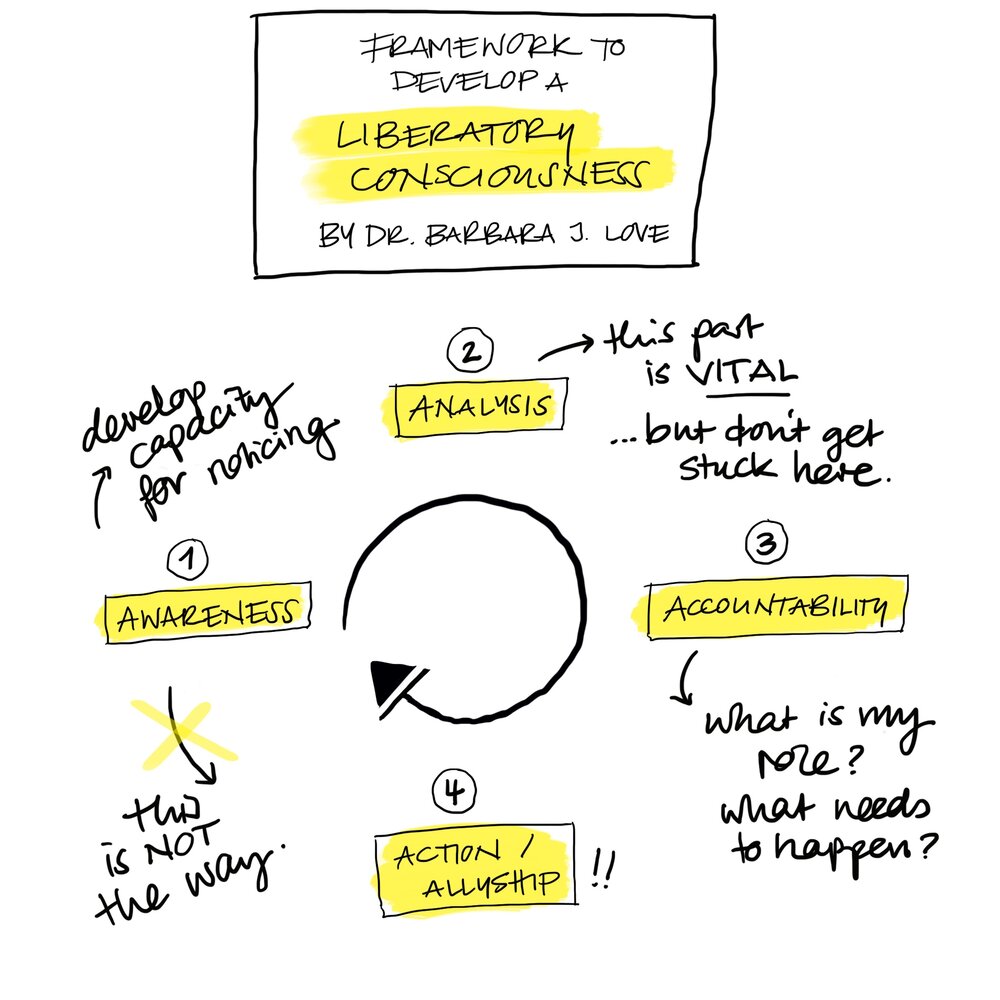 FRAMEWORK TO
DEVELOP A
LIBERATORY
CONSCIOUSNESS
BY DR. BARBARA J. LOVE
1
AWARENESS
develop
capacity
for noticing
this
is NOT
the way.
2
ANALYSIS
this part
is VITAL
...but don't get
stuck here.
3
ACCOUNTABILITY
what is my
role?
what needs
to happen?
4
ACTION /
ALLYSHIP
!!